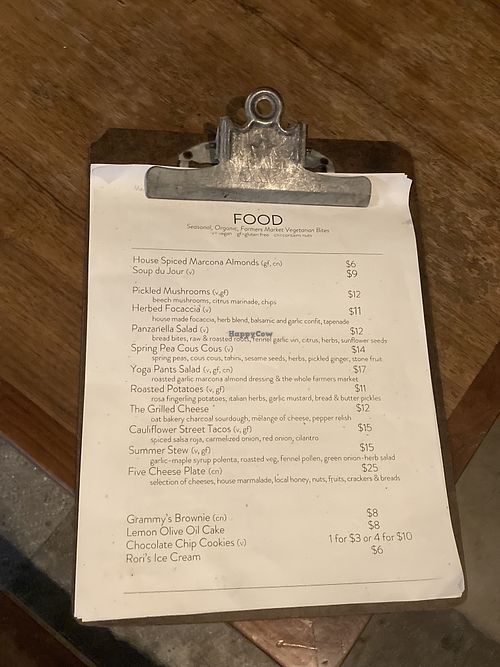 FOOD
Seasonal, Organic, Farmers Market Vegetarian Bites
v= vegan gf=gluten free cn=contains nuts
House Spiced Marcona Almonds (gf, cn) $6
Soup du Jour (v) $9
Pickled Mushrooms (v,gf) $12
beech mushrooms, citrus marinade, chips
Herbed Focaccia (v) $11
house made focaccia, herb blend, balsamic and garlic confit, tapenade
HappyCow
Panzanella Salad (v) $12
bread bites, raw & roasted roots, fennel garlic vin, citrus, herbs, sunflower seeds
Spring Pea Cous Cous (v) $14
spring peas, cous cous, tahini, sesame seeds, herbs, pickled ginger, stone fruit
Yoga Pants Salad (v, gf, cn) $17
roasted garlic marcona almond dressing & the whole farmers market
Roasted Potatoes (v, gf) $11
rosa fingerling potatoes, italian herbs, garlic mustard, bread & butter pickles
The Grilled Cheese $12
oat bakery charcoal sourdough, mélange of cheese, pepper relish
Cauliflower Street Tacos (v, gf) $15
spiced salsa roja, carmelized onion, red onion, cilantro
Summer Stew (v, gf) $15
garlic-maple syrup polenta, roasted veg, fennel pollen, green onion-herb salad
Five Cheese Plate (cn) $25
selection of cheeses, house marmalade, local honey, nuts, fruits, crackers & breads
Grammy's Brownie (cn) $8
Lemon Olive Oil Cake $8
Chocolate Chip Cookies (v) 1 for $3 or 4 for $10
Rori's Ice Cream $6